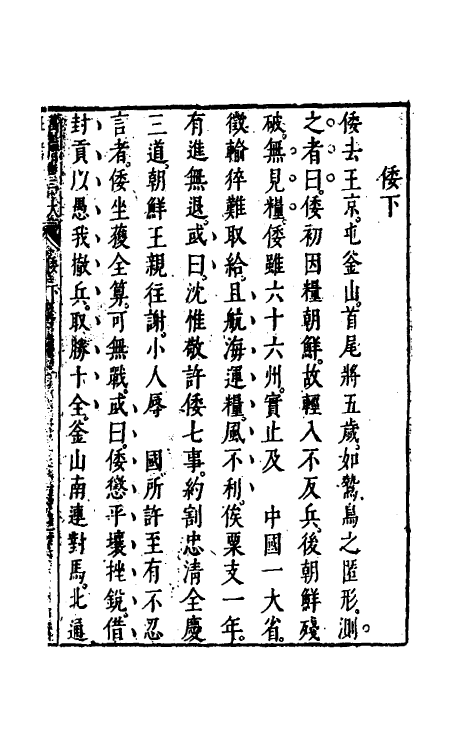 倭下
倭去王京。屯釜山。首尾將五歲。如鷙鳥之匿形。測
之者曰。倭初因糧朝鮮。故輕入不反兵。後朝鮮殘
破。無見糧。倭雖六十六州。實止及　中國一大省。
徵輸猝難取給。且航海運糧。風不利。俟粟支一年。
有進無退。或曰。沈惟敬許倭七事。約割忠清全慶
三道。朝鮮王親往謝。小人辱　國。所許至有不忍
言者。倭坐穫全算。可無戰。或曰。倭懲平壤挫銳。借
封貢以愚我撤兵。取勝卡全釜山南連對馬。北通